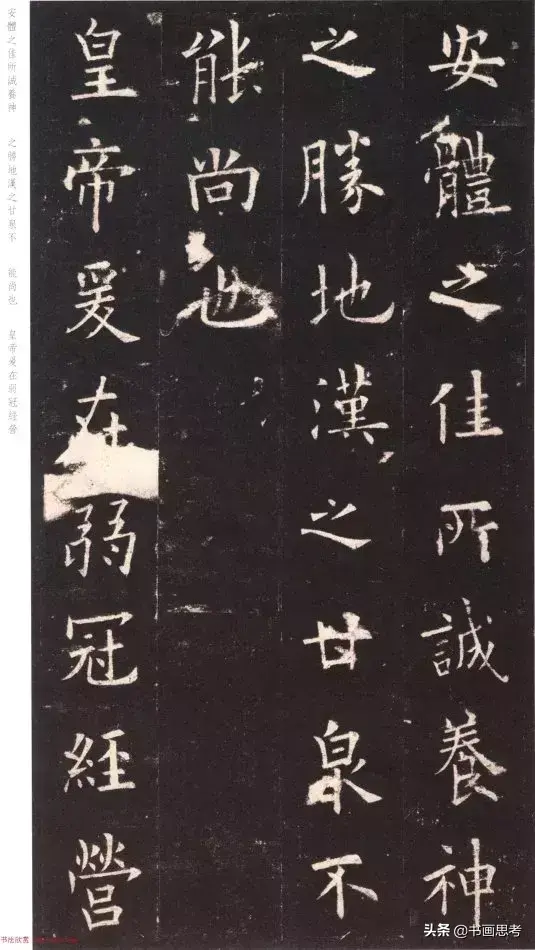 安體之佳所誠養神
之勝地漢之甘泉不
能尚也
皇帝爰在弱冠經營
安體之佳所誠養神 之勝地漢之甘泉不 能尚也 皇帝爰在弱冠經營
书法欣赏
头条 @书画思考